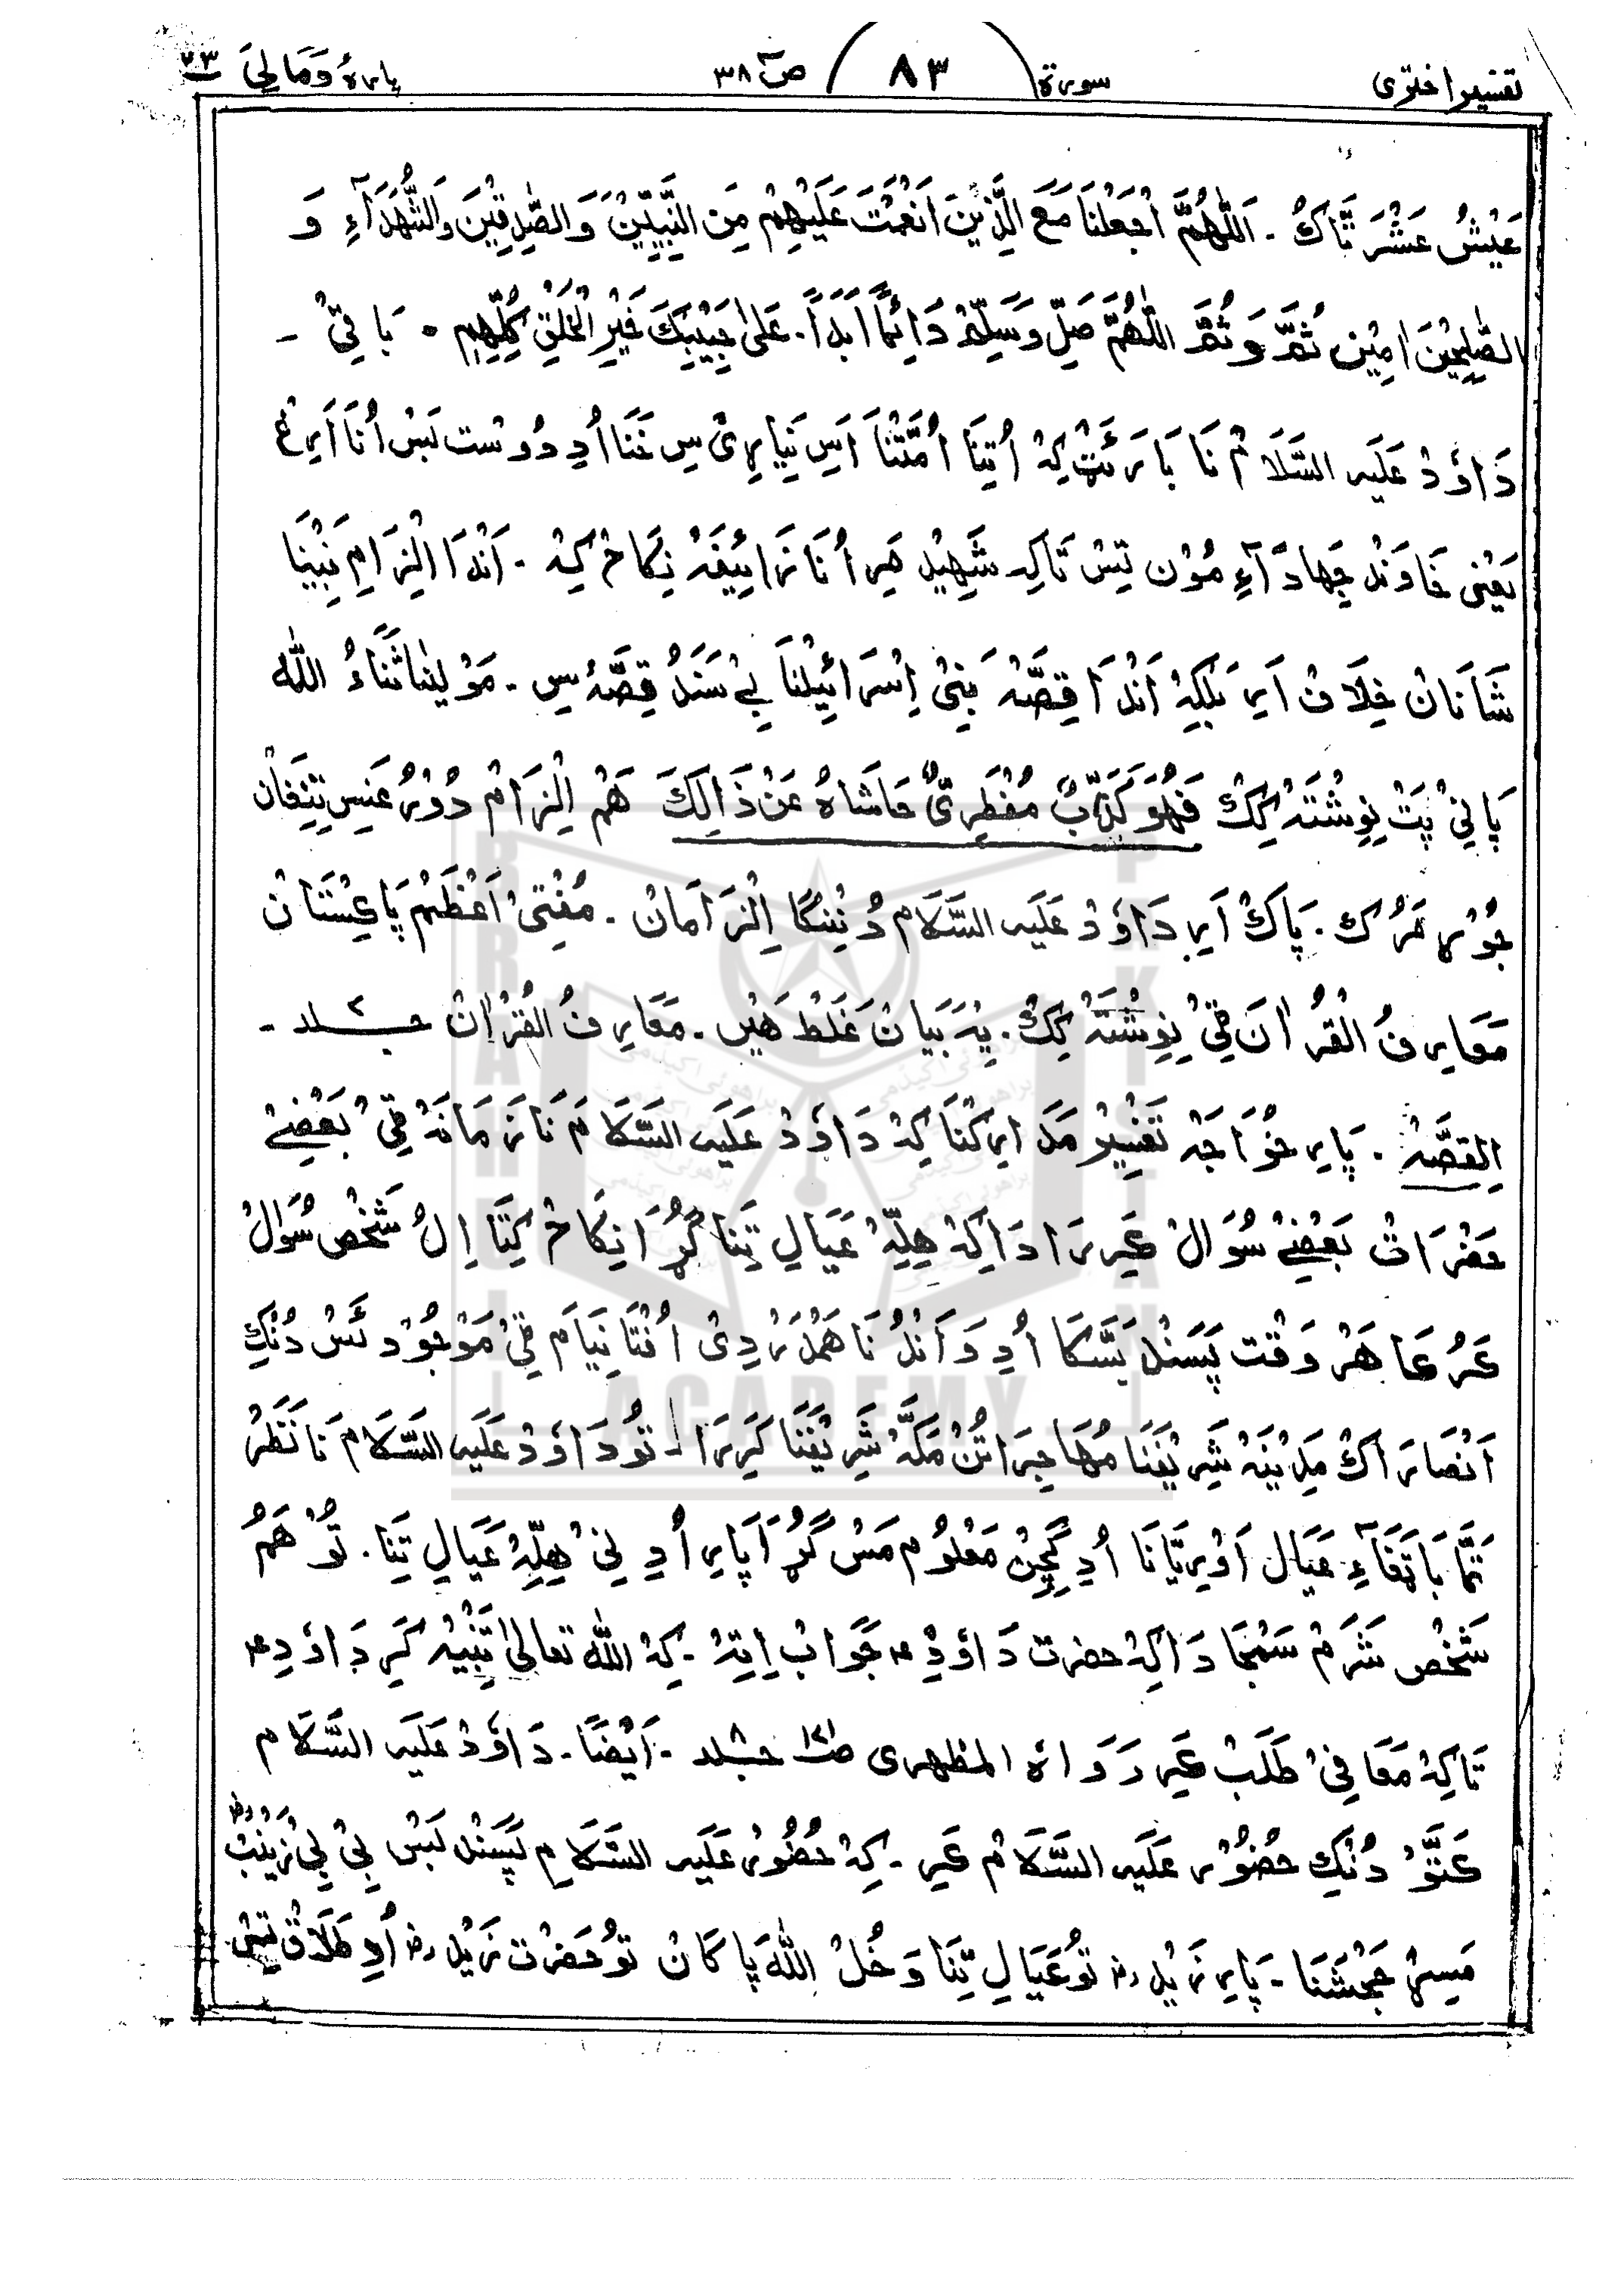 تفسیر اختری سورة ( ۸۳ ) صٓ ۳۸ پارہُ وَمَالِیَ ۲۳
عَیْشُ عَشْرَ تَّاکْ ۔ اَللّٰهُمَّ اجْعَلْنَا مَعَ الَّذِیْنَ اَنْعَمْتَ عَلَیْهِمْ مِنَ النَّبِیّٖنَ وَالصِّدِّقِیْنَ وَالشُّهَدَآءِ وَ
الصّٰلِحِیْنَ اٰمِیْن ثُمَّ وَ ثُمَّ اَللّٰهُمَّ صَلِّ وَسَلِّمْ دَائِمًا اَبَدًا۔ عَلیٰ حَبِیْبِکَ خَیْرِ الْخَلْقِ کُلِّهِمِ ۰ بَاقِیْ ۔
دَاوٗدْ عَلَیہِ السَّلَامْ نَا بَارَئَٹْ کِہْ اُتِنَا اُمَّتْنَا اَسِ نِیَارِیْ سِ خَنَا اُدِ دُوسْت بَسْ اُنَا اَرِغْ
یَعْنِی خَاوَنْدْ جِهَادَآءِ مُوْن تِسْ تَاکِہ شَهِیْد مَرِ اُنَا زَائِیْفَہْ نِکَاحْ کِہْ ۔ اَنْدَا اِلْزَامِ نَبِیْنَا
شَانَانْ خِلَافْ اَرِ بَلْکِہْ اَنْدَا قِصَّہْ بَنِیْ اِسْرَائِیْلْنَا بِےْ سَنَدْ قِصَّہُ سِ ۔ مَوْلٰینَا ثَنَاءُ اللّٰہ
پَانِیْ پَتْ نِوِشْتَہْ کِکْ فَهُوَ کَذَّابٌ مُفْطَرِیٌّ حَاشَاہُ عَنْ ذَالِکَ هَمْ اِلْزَامْ دُوْرُ عَنِسِ یْتِغَانْ
جُوْړ مَرُک۔ پَاکْ اَرِ دَاوٗدْ عَلَیہِ السَّلَام دُنْنگَا اِلْزَامَانْ ۔ مُفْتِیْ اَعْظَمْ پَاکِسْتَانْ
مَعَارِفُ الْقُرْاٰنَ قِیْ نِوِشْتَہْ کِکْ۔ یِہْ بَیَانْ غَلَطْ هَیْں ۔ مَعَارِفُ الْقُرْاٰنْ جــلد ۔
اِلقِصَّہْ ۔ پَارِ خْوَاجَہْ تَفْسِیْر مَدَارِکْنَا کِہْ دَاوٗدْ عَلَیہِ السَّلَامْ نَا زَمَانَہْ قِیْ بَعْضِےْ
حَضْرَاتْ بَعْضِےْ سُوَالْ عَرِرَا دَاکِہْ هِلِّہْ عَیَالِ تِنَا گُړَا نِکَاحْ کِتَا اِ لْ شَخْص سُوَالْ
عَرُ عَا هَرْ وَقْت پَسَنْد بَسَّکَا اُدِ وَ اَنْدُ نَا هَمْدَرْدِیْ اُفْتَا نِیَامَ قِیْ مَوْجُوْد ئَسْ دُنْکِ
اَنْصَارَاکْ مَدِیْنَہْ شَرِیْفْنَا مُهَاجِرَاتْنْ مَکَّہْ شَرِیْفْنَا کَرِرَا ۔ تُو دَاوٗدْ عَلَیہِ السَّلَامْ نَا نَظَرْ
تَمَّا بَاتَفَآءِ عَیَال اَوْرِیَّانَا اُدِ گَچِنْ مَعْلُوْم مَسْ گُړَا پَارِ اُدِ نِیْ هِلِّہْ عَیَالِ تِنَا۔ تُوْ هَمُ
شَخْص شَرَمْ سَمْجَا دَاکِہْ حضرت دَاوٗدِ ؑ جَوَابْ اِتِہْ ۔ کِہْ اللّٰہ تعالیٰ تَنْبِیْہ کَرِ دَاوٗدِ ؑ
تَاکِہْ مَعَافِیْ طَلَبْ عَرِ رَوَاہُ المظهری ص۱۷۱ جلد ۸ ۔ اَیْضًا ۔ دَاوٗدْ عَلَیہِ السَّلَام
عَتَّوْ دُنْکِ حضُوْر عَلَیہِ السَّلَامْ عَرِ ۔ کِہْ حُضُوْر عَلَیہِ السَّلَامِ پَسَنْد بَسْ بِیْ بِیْ زَیْنَبْ رض
مَسِړْ جَحْشَنَا ۔ پَارِ زَیْد رض تُو عَیَالِ تِنَا وَ خُلْ اللّٰہَ پَاکَانْ تُو حَضْرت زَیْد رض اُدِ طَلَاقْ تِسْ